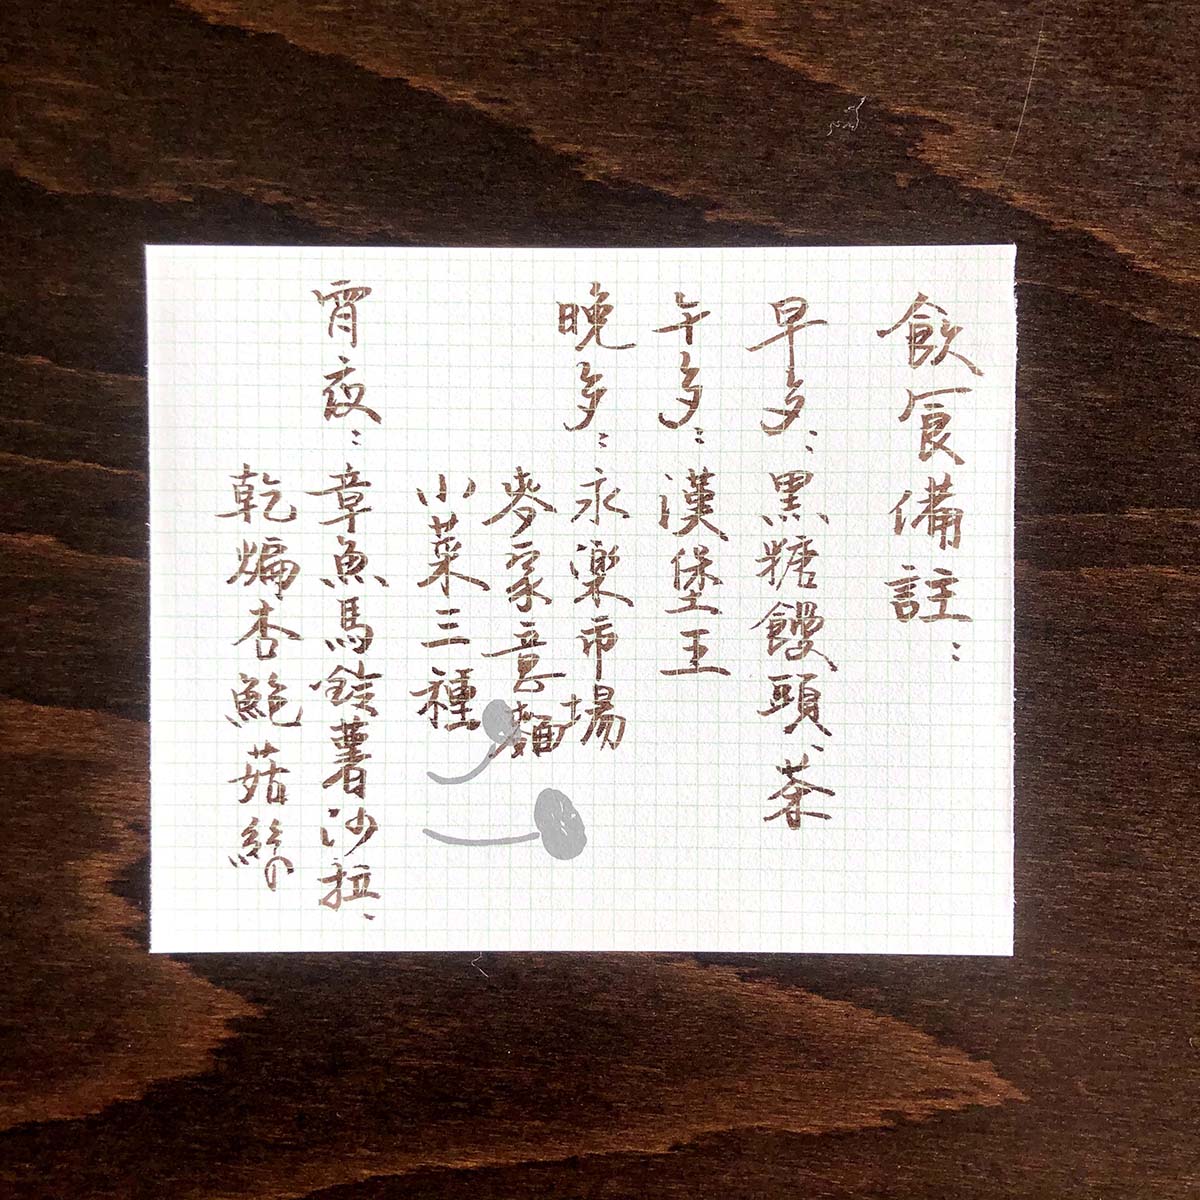 飲食備註：
早歺：黑糖饅頭、茶
午歺：漢堡王
晚歺：永樂市場
麥家意麵
小菜三種
宵夜：章魚馬鈴薯沙拉、
乾煸杏鮑菇絲